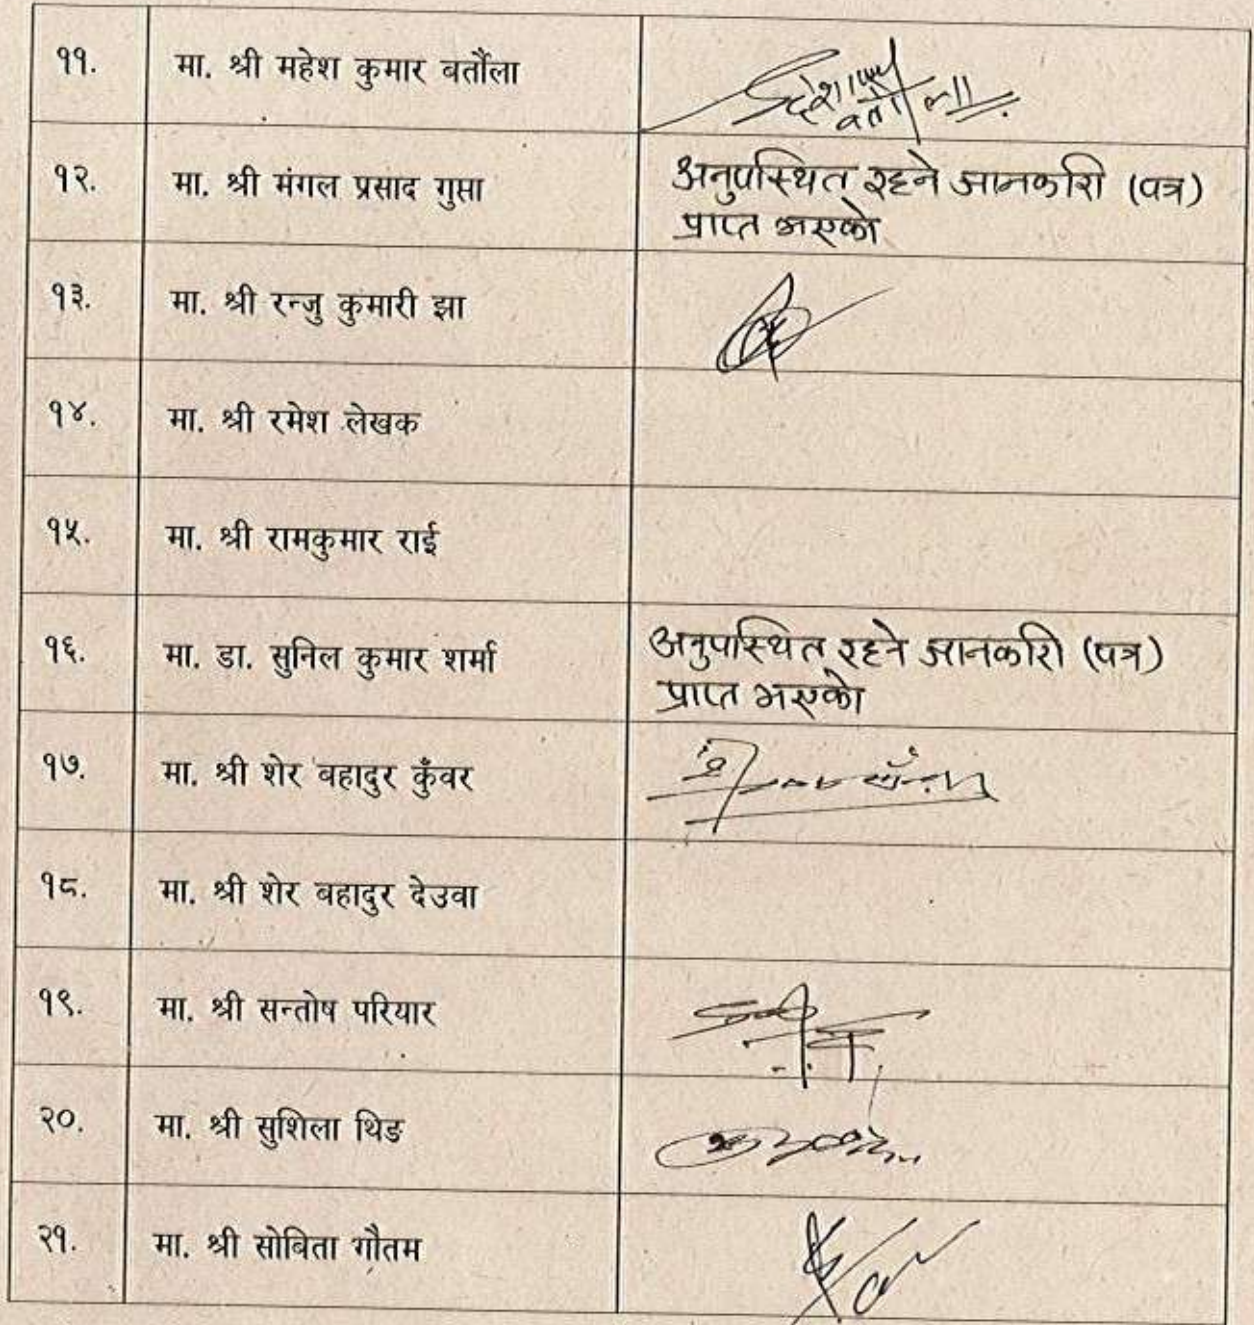 ११. मा. श्री महेश कुमार बर्तौला
१२. मा. श्री मंगल प्रसाद गुप्ता अनुपस्थित रहने जानकारी (पत्र)
प्राप्त भएको
१३. मा. श्री रन्जु कुमारी झा
१४. मा. श्री रमेश लेखक
१५. मा. श्री रामकुमार राई
१६. मा. डा. सुनिल कुमार शर्मा अनुपस्थित रहने जानकारी (पत्र)
प्राप्त भएको
१७. मा. श्री शेर बहादुर कुँवर
१८. मा. श्री शेर बहादुर देउवा
१९. मा. श्री सन्तोष परियार
२०. मा. श्री सुशिला थिङ
२१. मा. श्री सोबिता गौतम